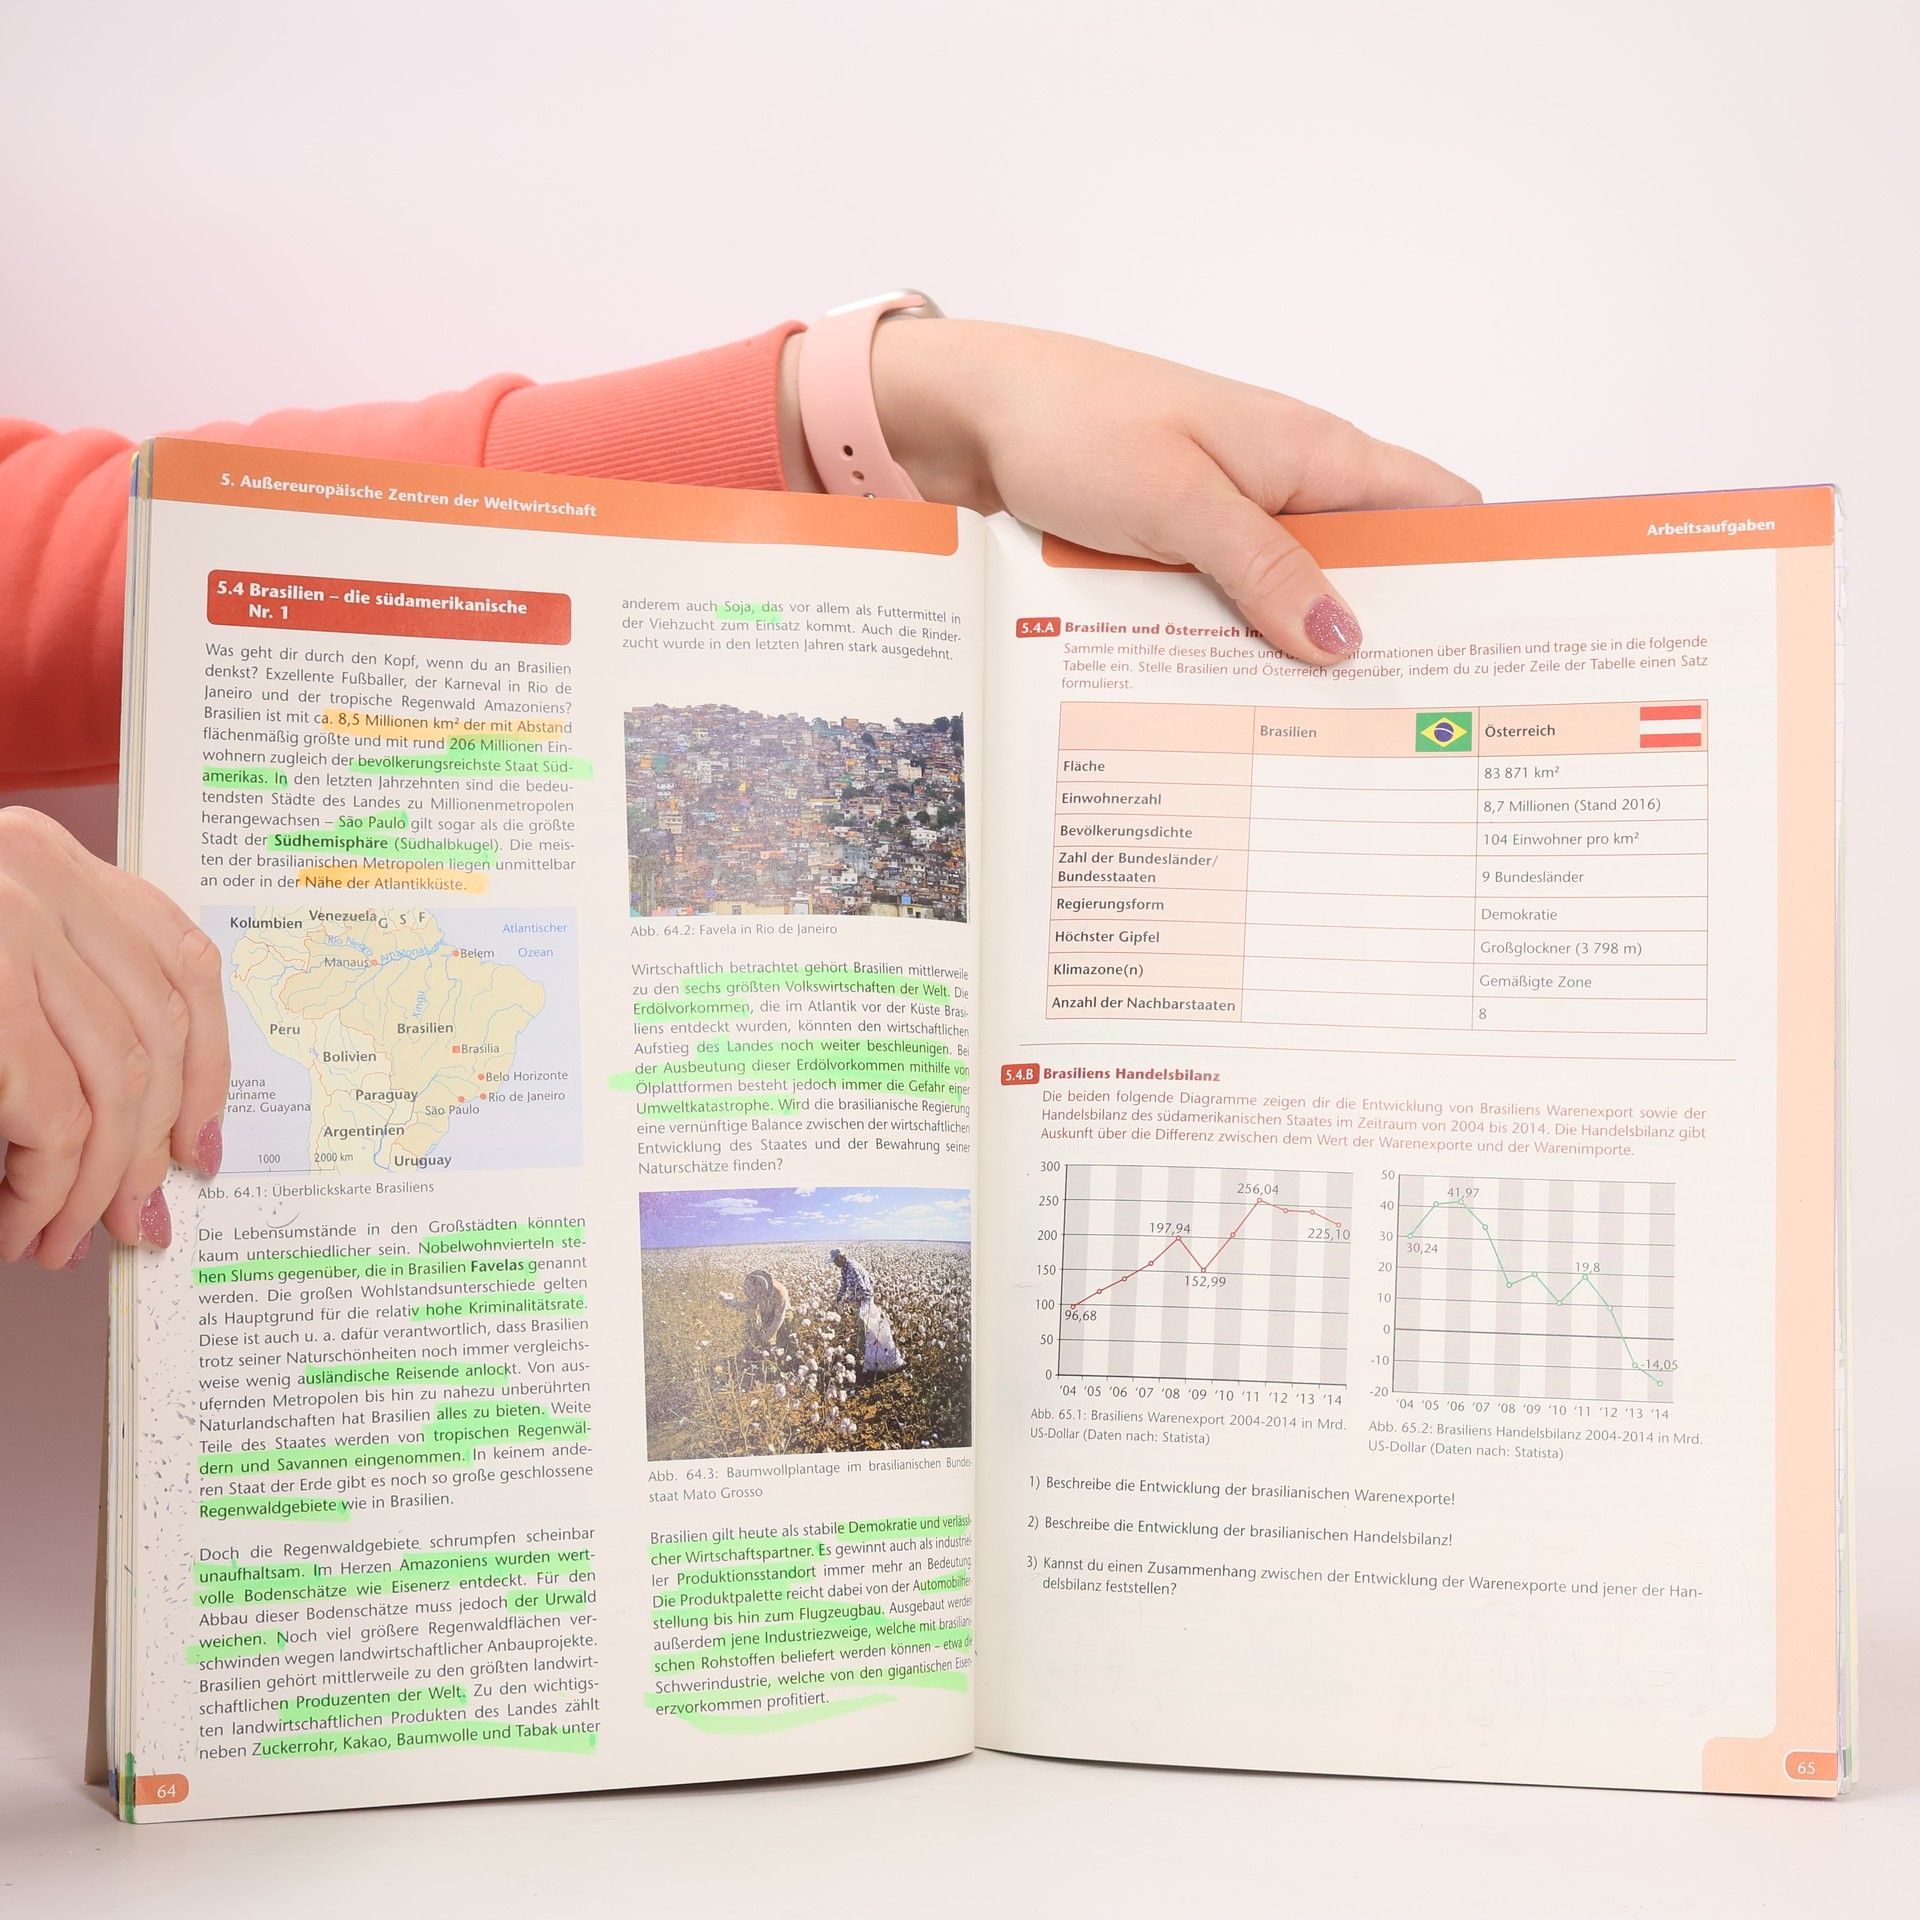 5. Außereuropäische Zentren der Weltwirtschaft
5.4 Brasilien – die südamerikanische
Nr. 1
Was geht dir durch den Kopf, wenn du an Brasilien
denkst? Exzellente Fußballer, der Karneval in Rio de
Janeiro und der tropische Regenwald Amazoniens?
Brasilien ist mit ca. 8,5 Millionen km² der mit Abstand
flächenmäßig größte und mit rund 206 Millionen Ein-
wohnern zugleich der bevölkerungsreichste Staat Süd-
amerikas. In den letzten Jahrzehnten sind die bedeu-
tendsten Städte des Landes zu Millionenmetropolen
herangewachsen – São Paulo gilt sogar als die größte
Stadt der Südhemisphäre (Südhalbkugel). Die meis-
ten der brasilianischen Metropolen liegen unmittelbar
an oder in der Nähe der Atlantikküste.
Kolumbien
Venezuela
G S F
Atlantischer
Ozean
Rio Negro
Amazonas
Manaus
Belem
Xingu
Peru
Brasilien
Bolivien
Brasilia
Belo Horizonte
Paraguay
Rio de Janeiro
São Paulo
uyana
uriname
ranz. Guayana
Argentinien
Uruguay
1000 2000 km
Abb. 64.1: Überblickskarte Brasiliens
Die Lebensumstände in den Großstädten könnten
kaum unterschiedlicher sein. Nobelwohnvierteln ste-
hen Slums gegenüber, die in Brasilien Favelas genannt
werden. Die großen Wohlstandsunterschiede gelten
als Hauptgrund für die relativ hohe Kriminalitätsrate.
Diese ist auch u. a. dafür verantwortlich, dass Brasilien
trotz seiner Naturschönheiten noch immer vergleichs-
weise wenig ausländische Reisende anlockt. Von aus-
ufernden Metropolen bis hin zu nahezu unberührten
Naturlandschaften hat Brasilien alles zu bieten. Weite
Teile des Staates werden von tropischen Regenwäl-
dern und Savannen eingenommen. In keinem ande-
ren Staat der Erde gibt es noch so große geschlossene
Regenwaldgebiete wie in Brasilien.
Doch die Regenwaldgebiete schrumpfen scheinbar
unaufhaltsam. Im Herzen Amazoniens wurden wert-
volle Bodenschätze wie Eisenerz entdeckt. Für den
Abbau dieser Bodenschätze muss jedoch der Urwald
weichen. Noch viel größere Regenwaldflächen ver-
schwinden wegen landwirtschaftlicher Anbauprojekte.
Brasilien gehört mittlerweile zu den größten landwirt-
schaftlichen Produzenten der Welt. Zu den wichtigs-
ten landwirtschaftlichen Produkten des Landes zählt
neben Zuckerrohr, Kakao, Baumwolle und Tabak unter
64
anderem auch Soja, das vor allem als Futtermittel in
der Viehzucht zum Einsatz kommt. Auch die Rinder-
zucht wurde in den letzten Jahren stark ausgedehnt.
Abb. 64.2: Favela in Rio de Janeiro
Wirtschaftlich betrachtet gehört Brasilien mittlerweile
zu den sechs größten Volkswirtschaften der Welt. Die
Erdölvorkommen, die im Atlantik vor der Küste Brasi-
liens entdeckt wurden, könnten den wirtschaftlichen
Aufstieg des Landes noch weiter beschleunigen. Bei
der Ausbeutung dieser Erdölvorkommen mithilfe von
Ölplattformen besteht jedoch immer die Gefahr einer
Umweltkatastrophe. Wird die brasilianische Regierung
eine vernünftige Balance zwischen der wirtschaftlichen
Entwicklung des Staates und der Bewahrung seiner
Naturschätze finden?
Abb. 64.3: Baumwollplantage im brasilianischen Bundes-
staat Mato Grosso
Brasilien gilt heute als stabile Demokratie und verlässli-
cher Wirtschaftspartner. Es gewinnt auch als industriel-
ler Produktionsstandort immer mehr an Bedeutung.
Die Produktpalette reicht dabei von der Automobilher-
stellung bis hin zum Flugzeugbau. Ausgebaut werden
außerdem jene Industriezweige, welche mit brasiliani-
schen Rohstoffen beliefert werden können – etwa die
Schwerindustrie, welche von den gigantischen Eisen-
erzvorkommen profitiert.
Arbeitsaufgaben
5.4.A Brasilien und Österreich im
Sammle mithilfe dieses Buches und Informationen über Brasilien und trage sie in die folgende
Tabelle ein. Stelle Brasilien und Österreich gegenüber, indem du zu jeder Zeile der Tabelle einen Satz
formulierst.
Brasilien Österreich
Fläche 83 871 km²
Einwohnerzahl 8,7 Millionen (Stand 2016)
Bevölkerungsdichte 104 Einwohner pro km²
Zahl der Bundesländer/
Bundesstaaten 9 Bundesländer
Regierungsform Demokratie
Höchster Gipfel Großglockner (3 798 m)
Klimazone(n) Gemäßigte Zone
Anzahl der Nachbarstaaten 8
5.4.B Brasiliens Handelsbilanz
Die beiden folgende Diagramme zeigen dir die Entwicklung von Brasiliens Warenexport sowie der
Handelsbilanz des südamerikanischen Staates im Zeitraum von 2004 bis 2014. Die Handelsbilanz gibt
Auskunft über die Differenz zwischen dem Wert der Warenexporte und der Warenimporte.
300
250
200
150
100
50
0
96,68
197,94
152,99
256,04
225,10
'04 '05 '06 '07 '08 '09 '10 '11 '12 '13 '14
Abb. 65.1: Brasiliens Warenexport 2004-2014 in Mrd.
US-Dollar (Daten nach: Statista)
50
40
30
20
10
0
-10
-20
30,24
41,97
19,8
-14,05
'04 '05 '06 '07 '08 '09 '10 '11 '12 '13 '14
Abb. 65.2: Brasiliens Handelsbilanz 2004-2014 in Mrd.
US-Dollar (Daten nach: Statista)
1) Beschreibe die Entwicklung der brasilianischen Warenexporte!
2) Beschreibe die Entwicklung der brasilianischen Handelsbilanz!
3) Kannst du einen Zusammenhang zwischen der Entwicklung der Warenexporte und jener der Han-
delsbilanz feststellen?
65